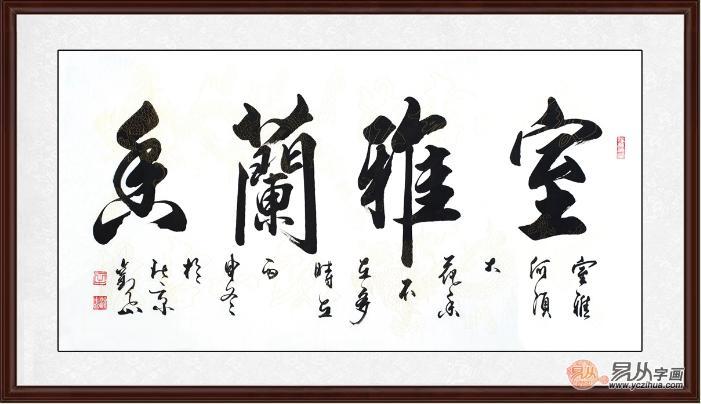 室雅蘭香
室雅
何須
大
花香
不
在多
時在
丙
申冬
於
北京
易从字画
www.yczihua.com